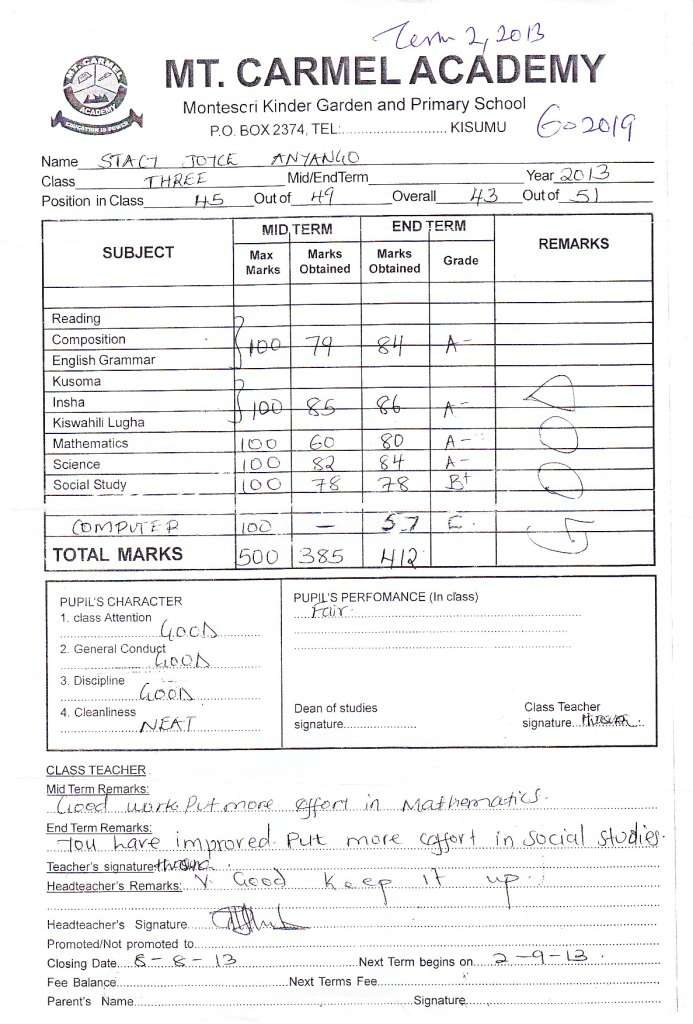 Term 2, 2013
MT. CARMEL
ACADEMY
EDUCATION IS POWER
MT. CARMEL ACADEMY
Montescri Kinder Garden and Primary School
P.O. BOX 2374, TEL:............................ KISUMU
Go 2019
Name STACY JOYCE ANYANGO
Class THREE Mid/EndTerm Year 2013
Position in Class 45 Out of 49 Overall 43 Out of 51
SUBJECT MID TERM END TERM REMARKS
Max Marks Marks Obtained Marks Obtained Grade
Reading
Composition 100 79 84 A-
English Grammar
Kusoma
Insha 100 85 86 A-
Kiswahili Lugha
Mathematics 100 60 80 A-
Science 100 82 84 A-
Social Study 100 78 78 B+
COMPUTER 100 – 57 C.
TOTAL MARKS 500 385 412
PUPIL'S CHARACTER
1. class Attention
GOOD
2. General Conduct
GOOD
3. Discipline
GOOD
4. Cleanliness
NEAT
PUPIL'S PERFOMANCE (In class)
Fair.
Dean of studies
signature......................
Class Teacher
signature...
CLASS TEACHER
Mid Term Remarks:
Good work. Put more effort in Mathematics.
End Term Remarks:
You have improved. Put more effort in social studies.
Teacher's signature
Headteacher's Remarks: V. Good Keep it up.
Headteacher's Signature
Promoted/Not promoted to
Closing Date 8-8-13 Next Term begins on 2-9-13.
Fee Balance Next Terms Fee
Parent's Name Signature